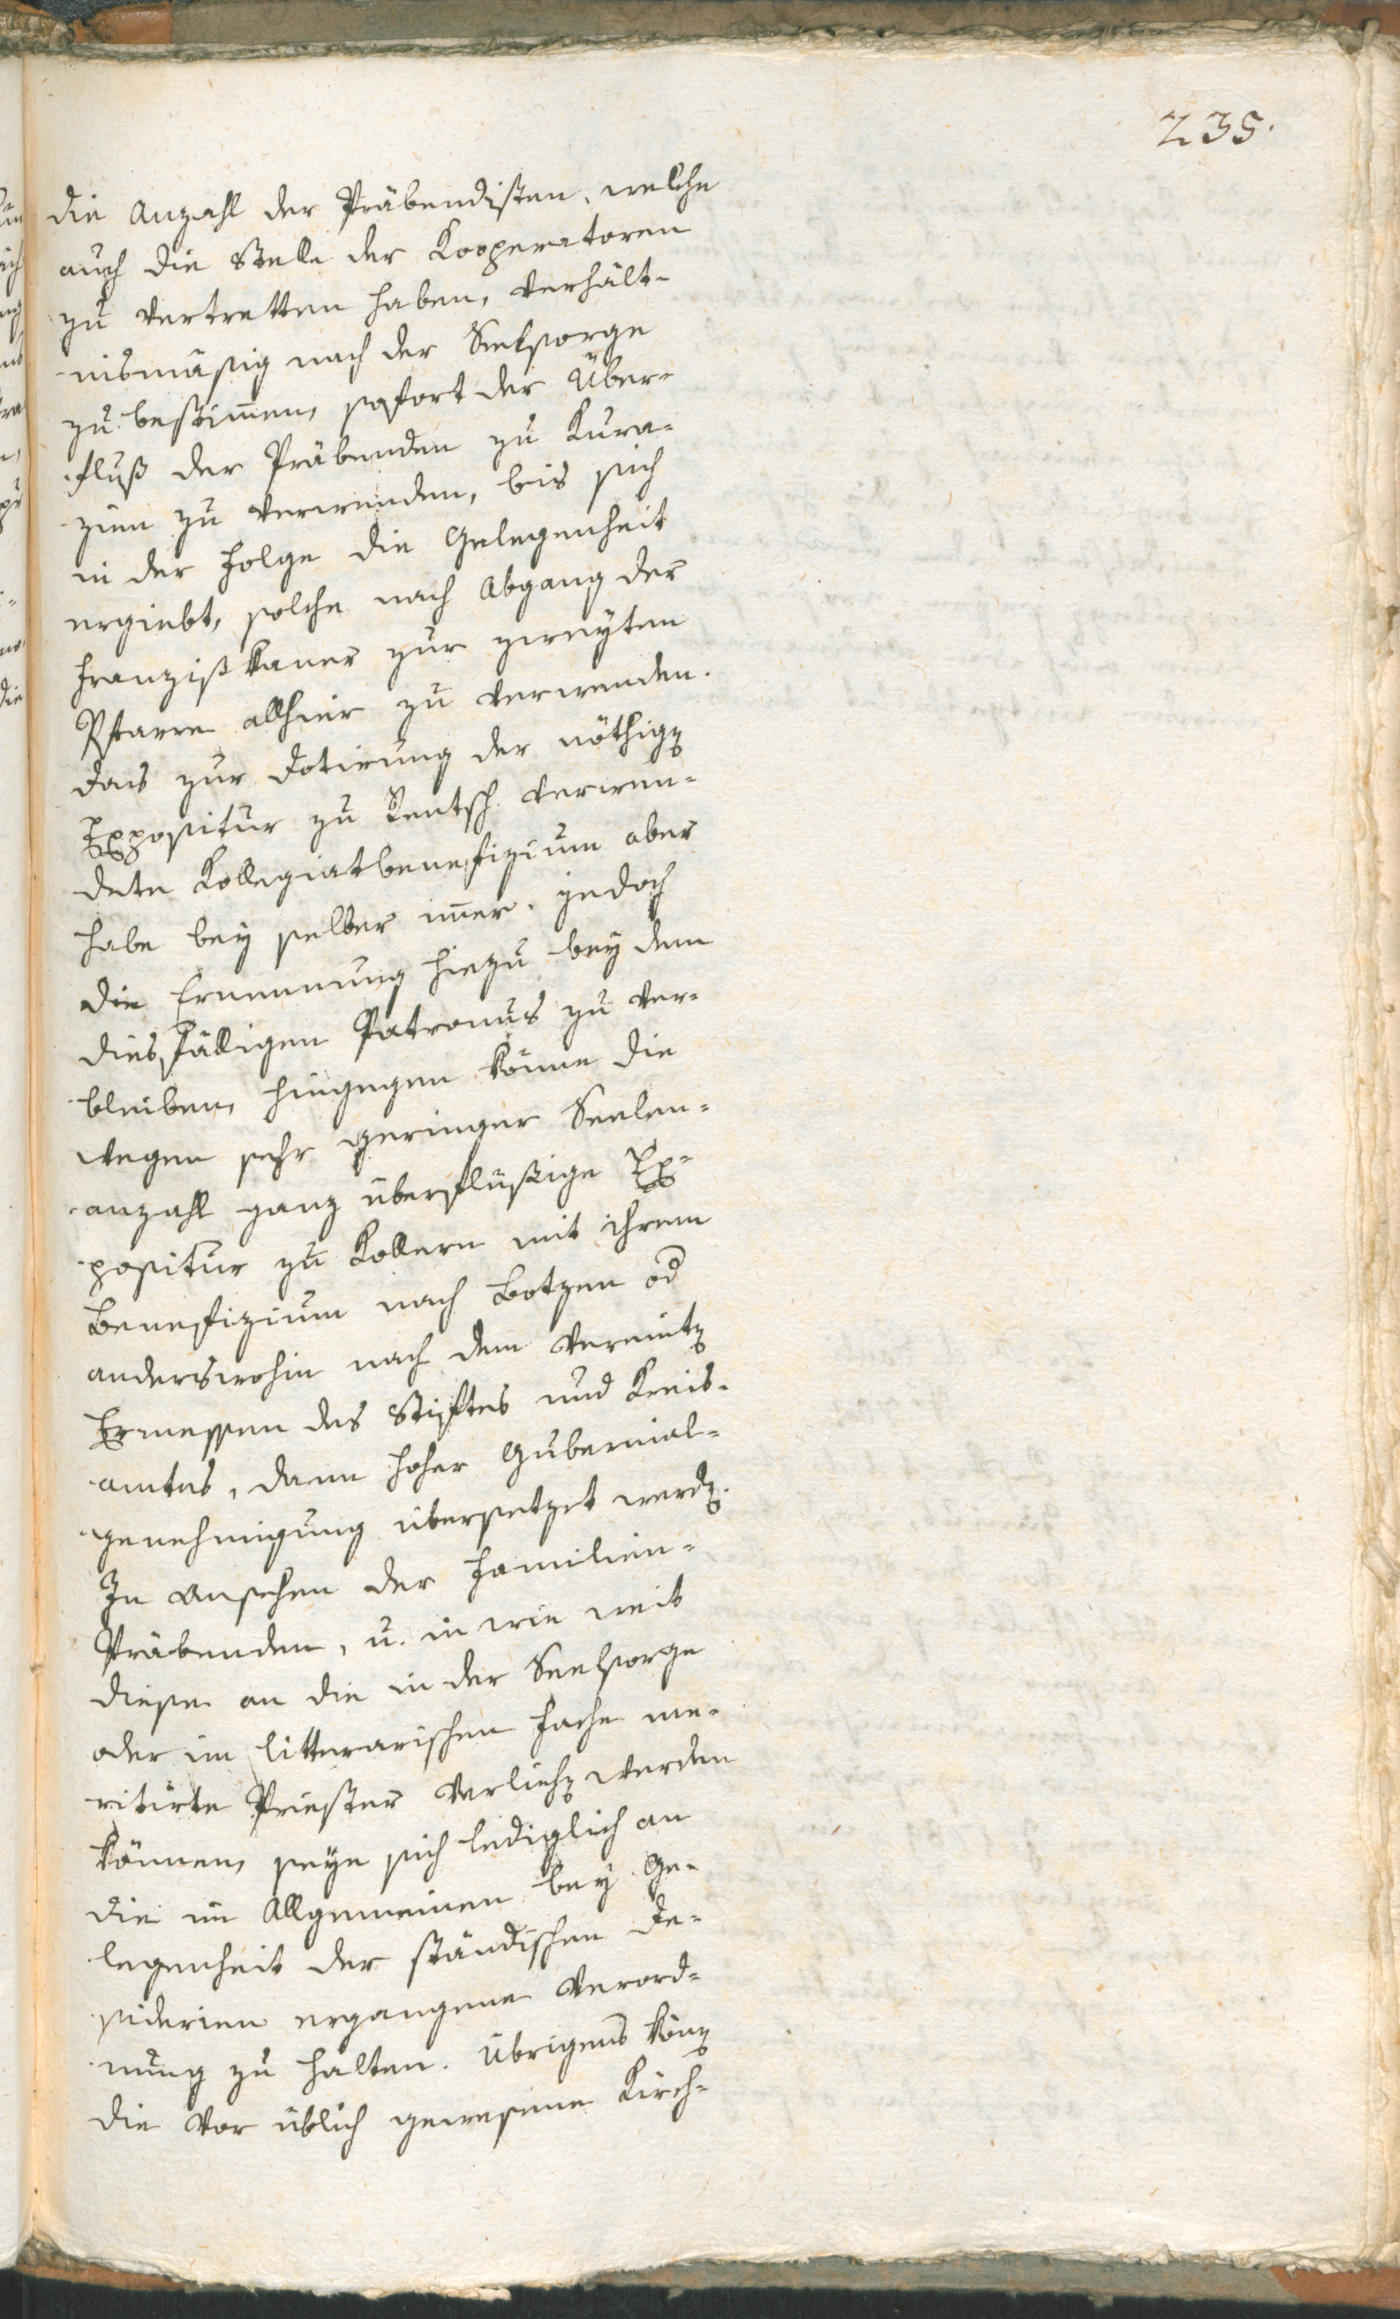 235.
die Anzahl der Präbendisten, welche
auch die Stelle der Kooperatoren
zu vertretten haben, verhält-
nismäsig nach der Seelsorge
zu bestimmen, sofort der Über-
fluß der Präbenden zu Kura-
zien zu verwenden, bis sich
in der Folge die Gelegenheit
ergiebt, solche nach Abgang der
Franzißkaner zur zweyten
Pfarre allhier zu verwenden.
das zur Dotirung der nöthigen
Expositur zu Rentsch verwen-
dete Kollegiatbenefizium aber
habe bey selber immer, jedoch
die Ernennung hiezu bey dem
diesfälligen Patronus zu ver-
bleiben, hingegen könne die
wegen sehr geringer Seelen-
anzahl ganz überflüßige Ex-
positur zu Kollern mit ihrem
Benefizium nach Botzen od
anderswohin nach dem vereinten
Ermessen des Stiftes und Kreis-
amtes, dann hoher Gubernial-
genehmigung übersetzet werden.
In Ansehen der Familien-
Präbenden, u. in wie weit
diese an die in der Seelsorge
oder im litterarischen Fache me-
ritirte Priester verliehen werden
können, seye sich lediglich an
die im Allgemeinen bey Ge-
legenheit der ständischen De-
siderien ergangene Verord-
nung zu halten. Übrigens können
die vor üblich gewesene Kirch-